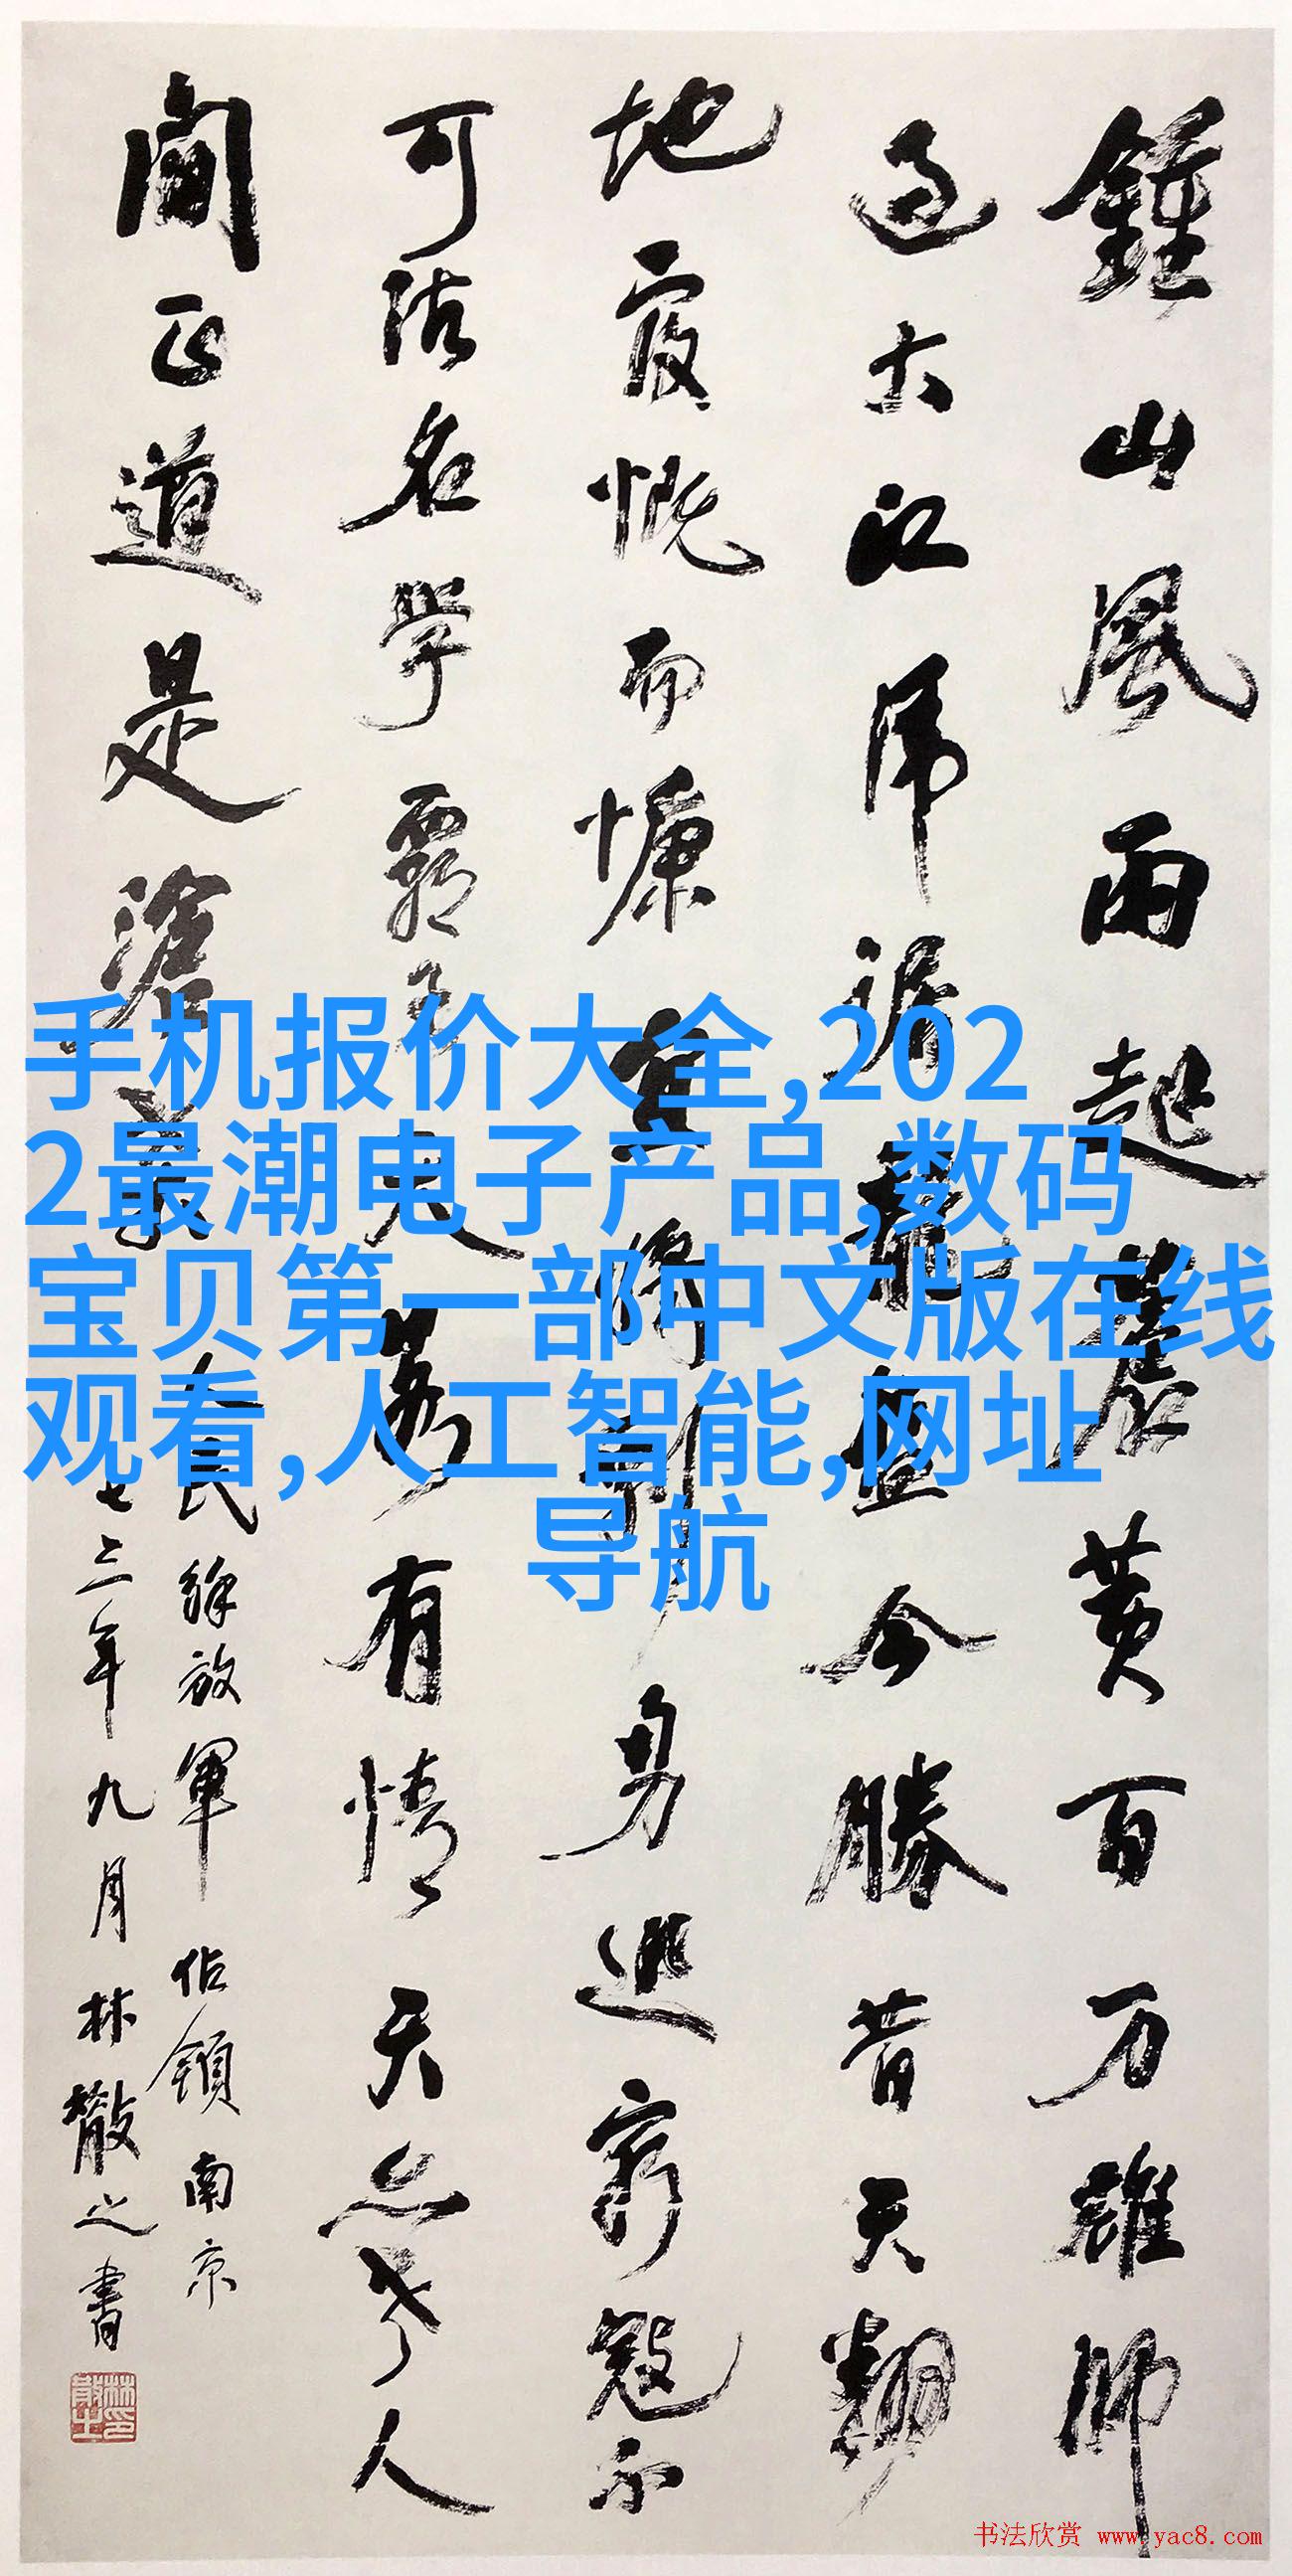 鍾山風雨起蒼黄百万雄師
过大江虎踞龍盤今勝昔天翻
地覆慨而慷宜将剩勇追窮寇不
可沽名學霸王天若有情天亦老人
間正道是滄桑
人民解放軍佔領南京
七三年九月林散之書
手机报价大全,202
2最潮电子产品,数码
宝贝第一部中文版在线
观看,人工智能,网址
导航
书法欣赏 www.yac8.com